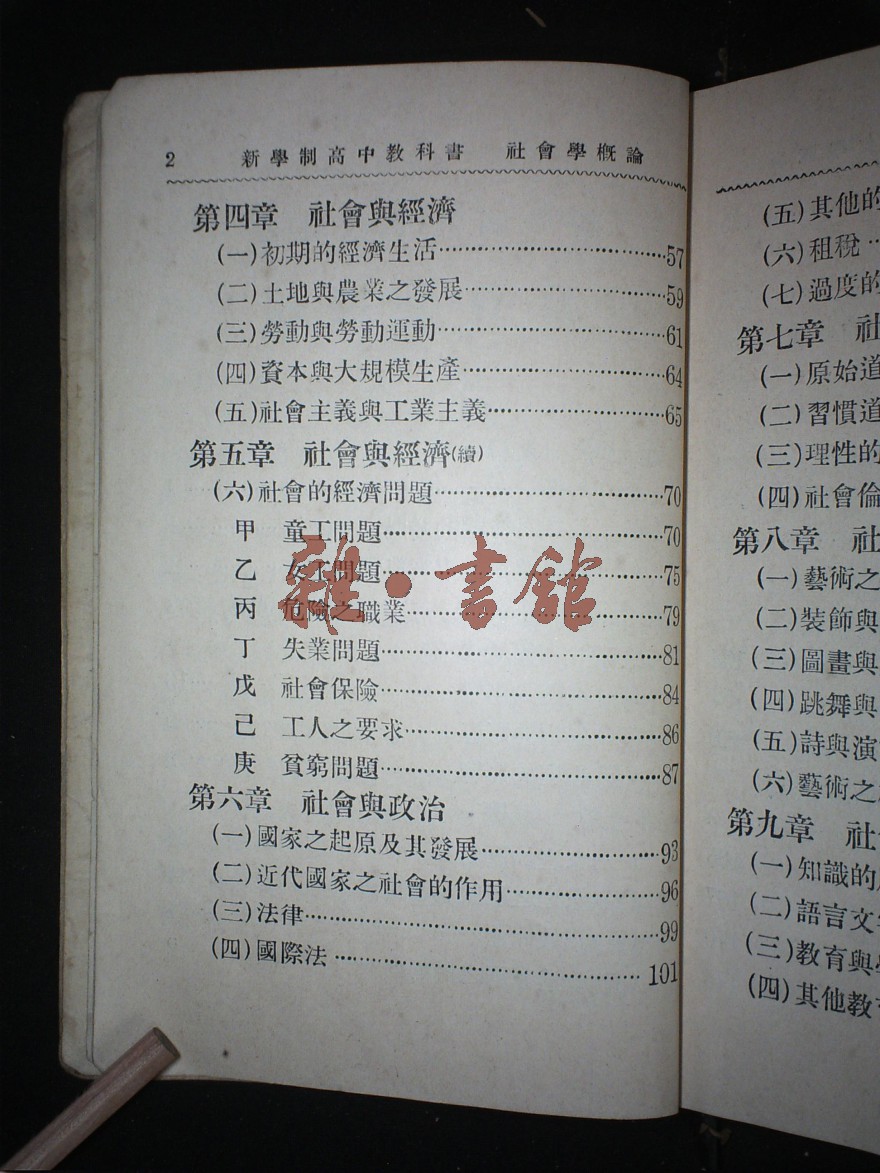 2 新學制高中教科書 社會學概論
第四章 社會與經濟
(一)初期的經濟生活……57
(二)土地與農業之發展……59
(三)勞動與勞動運動……61
(四)資本與大規模生產……64
(五)社會主義與工業主義……65
第五章 社會與經濟(續)
(六)社會的經濟問題……70
甲 童工問題……70
乙 女工問題……75
丙 危險之職業……79
丁 失業問題……81
戊 社會保險……84
己 工人之要求……86
庚 貧窮問題……87
第六章 社會與政治
(一)國家之起原及其發展……93
(二)近代國家之社會的作用……96
(三)法律……99
(四)國際法……101
雅·書館
(五)其他的
(六)租稅
(七)過度的
第七章 社
(一)原始道
(二)習慣道
(三)理性的
(四)社會倫
第八章 社
(一)藝術之
(二)裝飾與
(三)圖畫與
(四)跳舞與
(五)詩與演
(六)藝術之
第九章 社
(一)知識的
(二)語言文
(三)教育與
(四)其他教